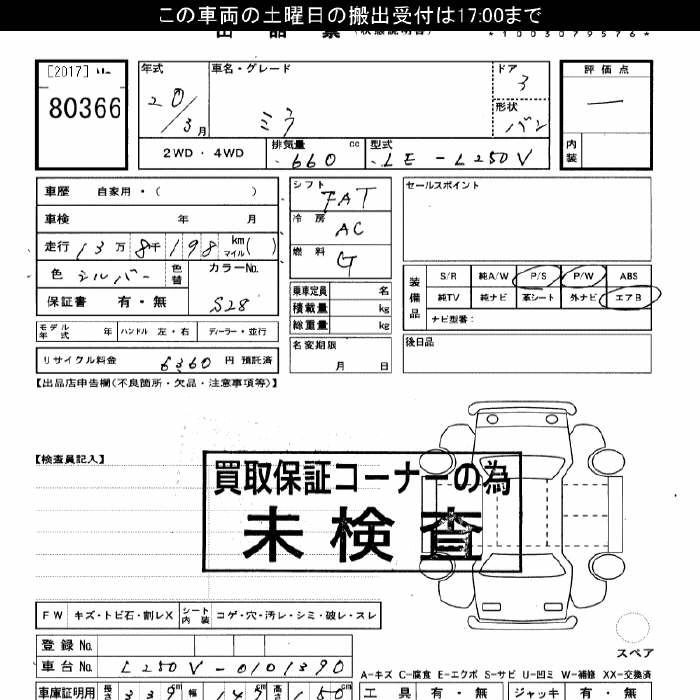 この車両の土曜日の搬出受付は17:00まで
出品票 (状態説明書)
*1003079576*
[2017]
80366
年式 車名・グレード ドア 3 評価点
20/3月 ミラ 形状 バン —
内装
2WD・4WD 排気量 660 cc 型式 LE-L250V
車歴 自家用・( )
車検 年 月
走行 13万8千198 km マイル( )
色 シルバー 色替 カラーNo. S28
保証書 有・無
シフト FAT
冷房 AC
燃料 G
乗車定員 名
積載量 kg
総重量 kg
名変期限 月 日
セールスポイント
装備品 S/R 純A/W P/S P/W ABS
純TV 純ナビ 革シート 外ナビ エアB
ナビ型番:
後日品
モデル年式 年 ハンドル 左・右 ディーラー・並行
リサイクル料金 6360 円 預託済
【出品店申告欄(不良箇所・欠品・注意事項等)】
【検査員記入】
買取保証コーナーの為
未検査
FW キズ・トビ石・割レX シート内装 コゲ・穴・汚レ・シミ・破レ・スレ
スペア
登録No.
車台No. L250V-0101390
A-キズ C-腐食 E-エクボ S-サビ U-凹ミ W-補修 XX-交換済
車庫証明用 長さ 339cm 幅 147cm 高さ 150cm
工具 有・無 ジャッキ 有・無